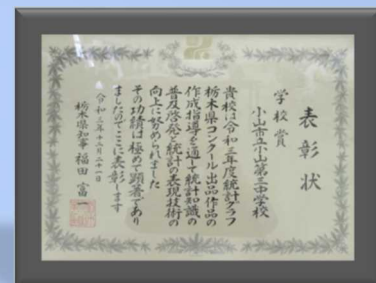 表彰状
学校賞
小山市立小山第三中学校
貴校は令和三年度統計グラフ
栃木県コンクール出品作品の
作成指導を通して統計知識の
普及啓発と統計の表現技術の
向上に努められました
その功績は極めて顕著であり
ましたのでここに表彰します
令和三年十二月二十一日
栃木県知事 福田富一